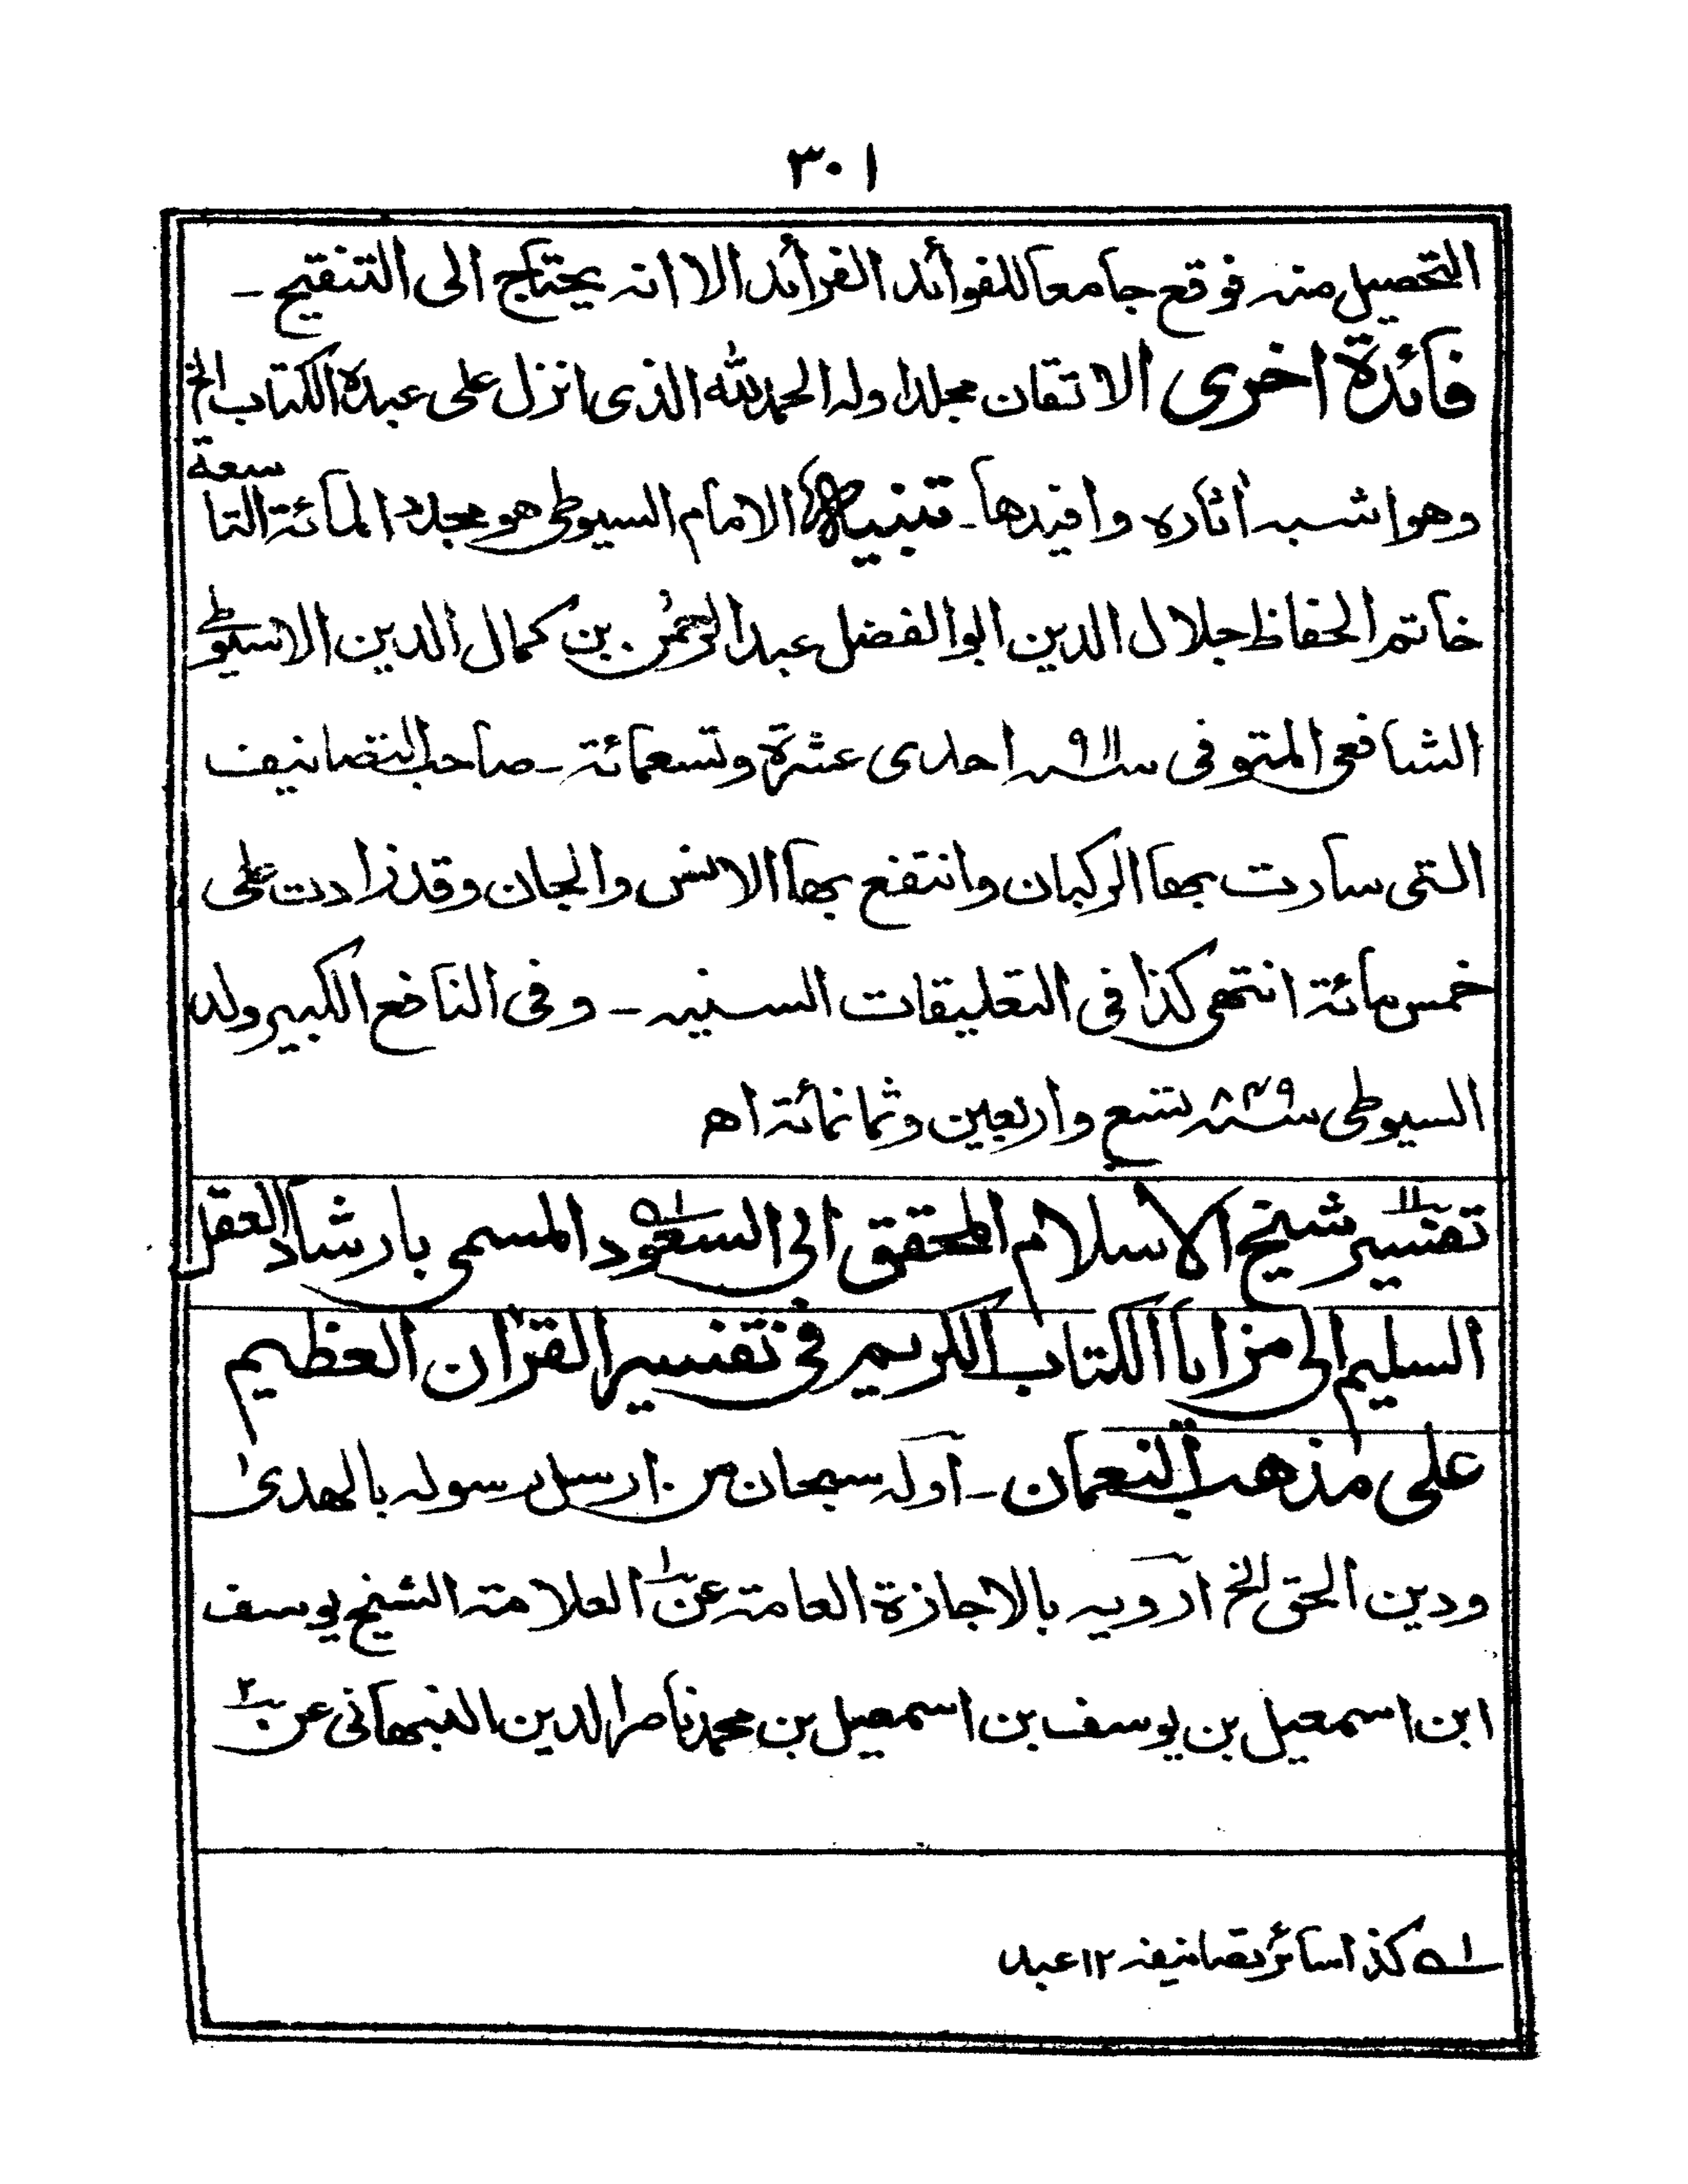 ٣٠١
التحصيل منه فوقع جامعا للفوائد الفرائد الا انه يحتاج الى التنقيح -
فائدة اخرى الاتقان مجلد اوله الحمد لله الذى انزل على عبده الكتاب الخ
وهو اشبه اثاره وافيدها - تنبيه الامام السيوطى هو مجدد المائة التاسعة
خاتم الحفاظ جلال الدين ابو الفضل عبد الرحمٰن بن كمال الدين الاسيوطى
الشافعى المتوفى سنة ٩١١ احدى عشرة وتسعمائة - صاحب التصانيف
التى سارت بها الركبان وانتفع بها الانس والجان وقد زادت على
خمس مائة انتهى كذا فى التعليقات السنيه - وفى النافع الكبير ولد
السيوطى سنة ٨٤٩ تسع واربعين وثمانمائة اھ
تفسير شيخ الاسلام المحقق ابى السعود المسمى بارشاد العقل
السليم الى مزايا الكتاب الكريم فى تفسير القران العظيم
على مذهب النعمان - اوله سبحان من ارسل رسوله بالهدىٰ
ودين الحق الخ ارويه بالاجازة العامة عن العلامة الشيخ يوسف
ابن اسمعيل بن يوسف بن اسمعيل بن محمد ناصر الدين النبهانى عن
١ه كذا سائر تصانيفه ١٢ عبد